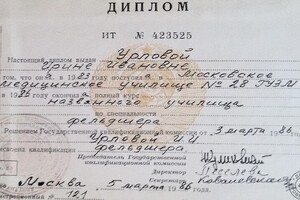 ДИПЛОМ
ИТ № 423525
Настоящий диплом выдан Урловой
Ирине Ивановне
в том, что он а в 1983 поступил а в Московское
медицинское училище № 28 ГУЗМ
и в 1986 окончил а полный курс
названного училища
по специальности
фельдшера
Решением Государственной квалификационной комиссии от 3 марта 1986
Урловой И.И.
квалификация фельдшера
Председатель Государственной
квалификационной комиссии
Директор
Секретарь
Москва 5 марта 1986
121